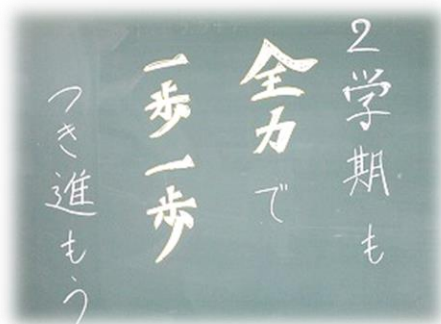 2学期も
全力で
一歩一歩
つき進もう